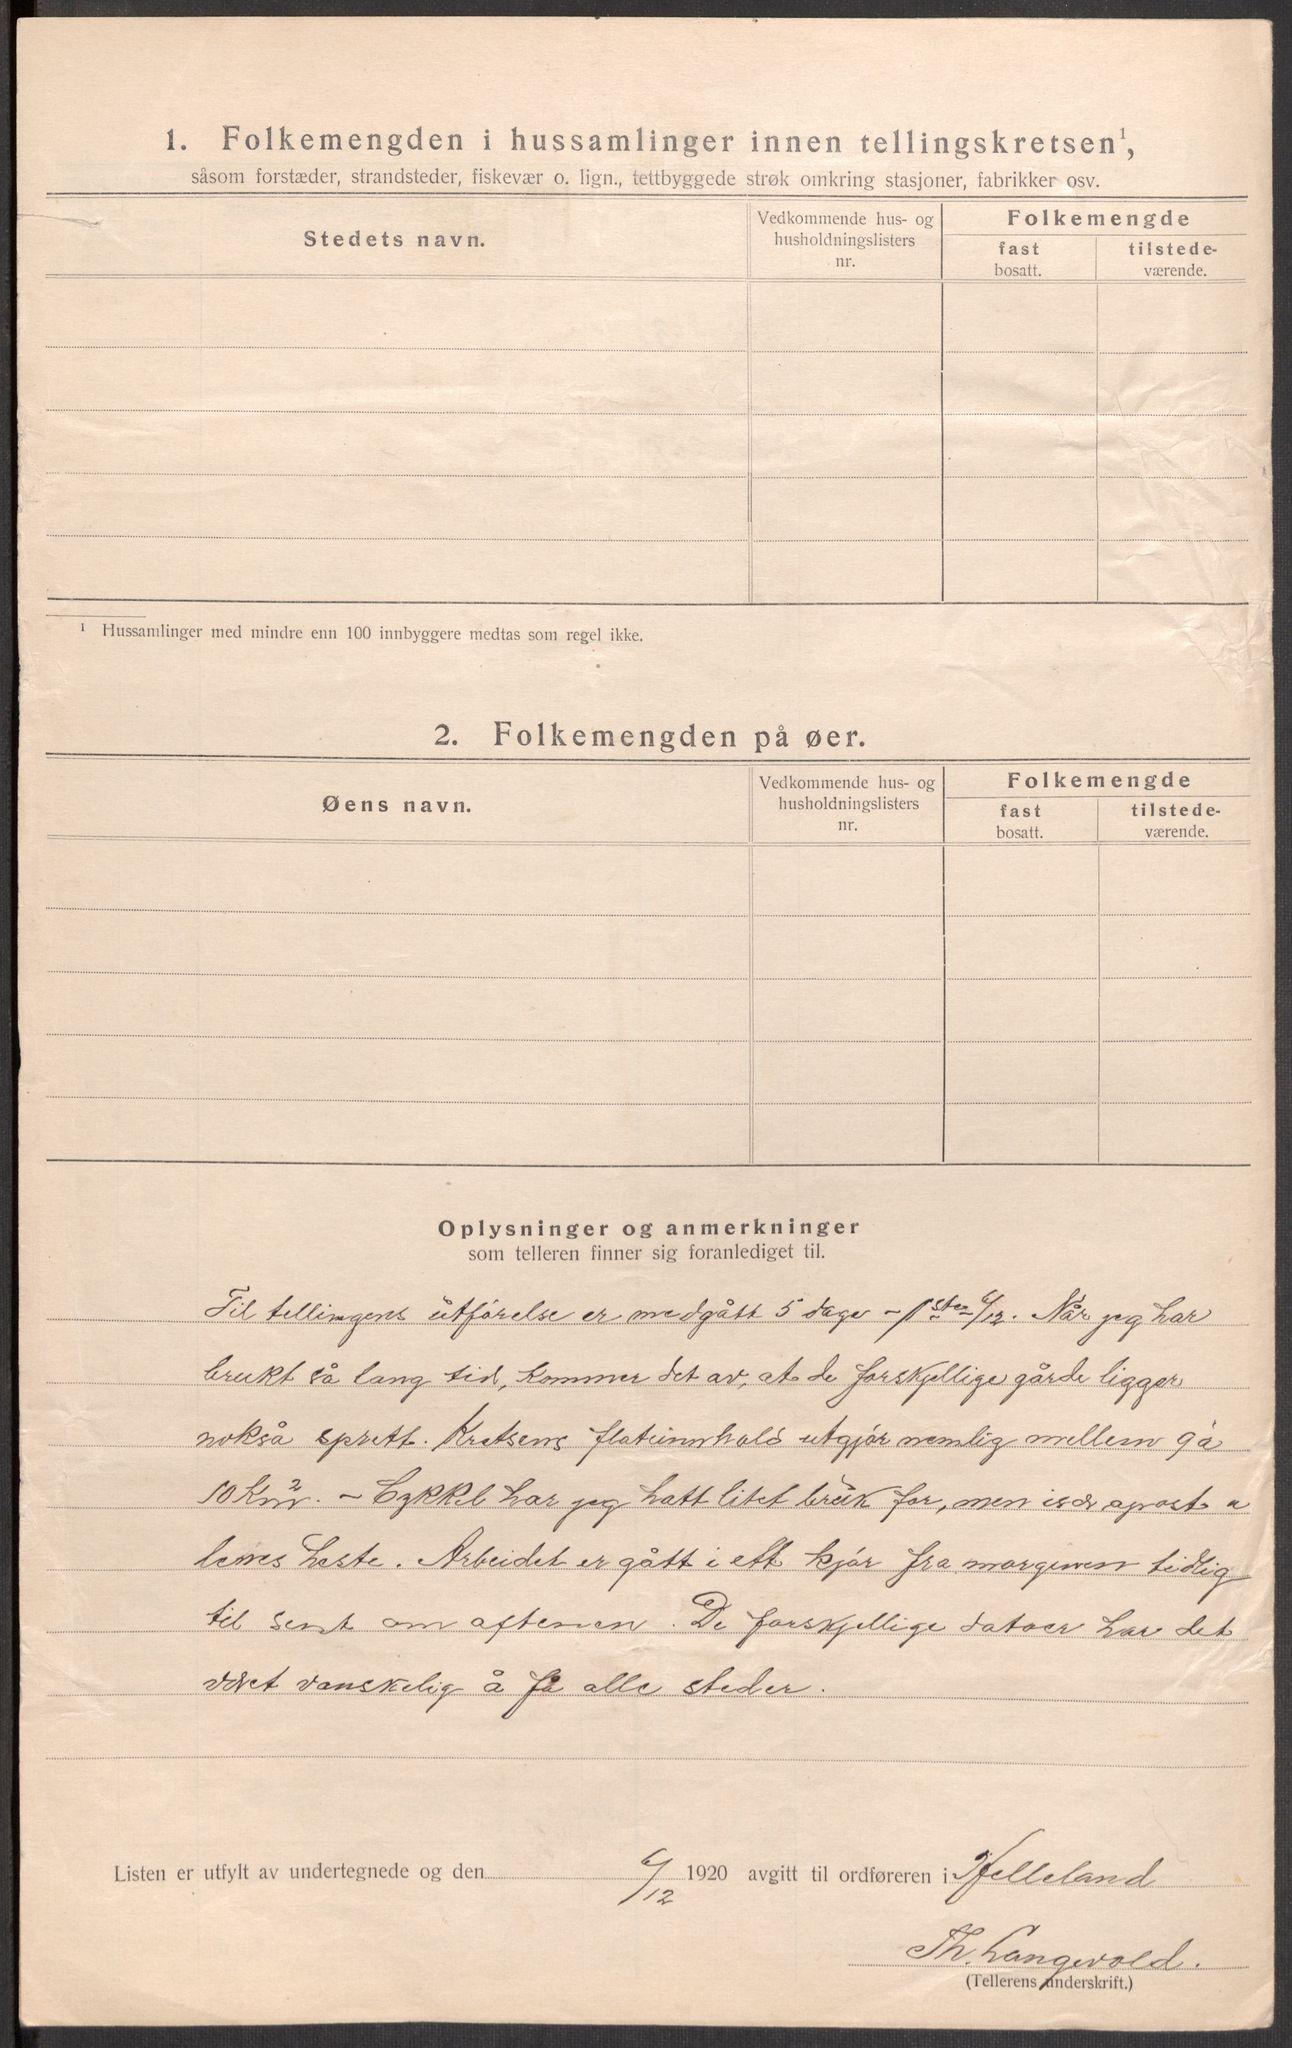 1. Folkemengden i hussamlinger innen tellingskretsen¹,
såsom forstæder, strandsteder, fiskevær o. lign., tettbyggede strøk omkring stasjoner, fabrikker osv.
Stedets navn.
Vedkommende hus- og
husholdningslisters
nr.
Folkemengde
fast
bosatt.
tilstede-
værende.
¹ Hussamlinger med mindre enn 100 innbyggere medtas som regel ikke.
2. Folkemengden på øer.
Øens navn.
Vedkommende hus- og
husholdningslisters
nr.
Folkemengde
fast
bosatt.
tilstede-
værende.
Oplysninger og anmerkninger
som telleren finner sig foranlediget til.
Til tellingens utførelse er medgått 5 dage – 1ste–6/12. Når jeg har
brukt så lang tid, kommer det av, at de forskjellige gårde ligger
nokså sprett. Kretsens flateinnhold utgjør nemlig mellem 9 à
10 Km². – Cykkel har jeg hatt litet bruk for, men
lenes heste. Arbeidet er gått i ett kjør fra morgenen tidlig
til sent om aftenen. De forskjellige datoer har det
vært vanskelig å få alle steder.
Listen er utfylt av undertegnede og den 6/12 1920 avgitt til ordføreren i Helleland
Th. Langevold.
(Tellerens underskrift.)